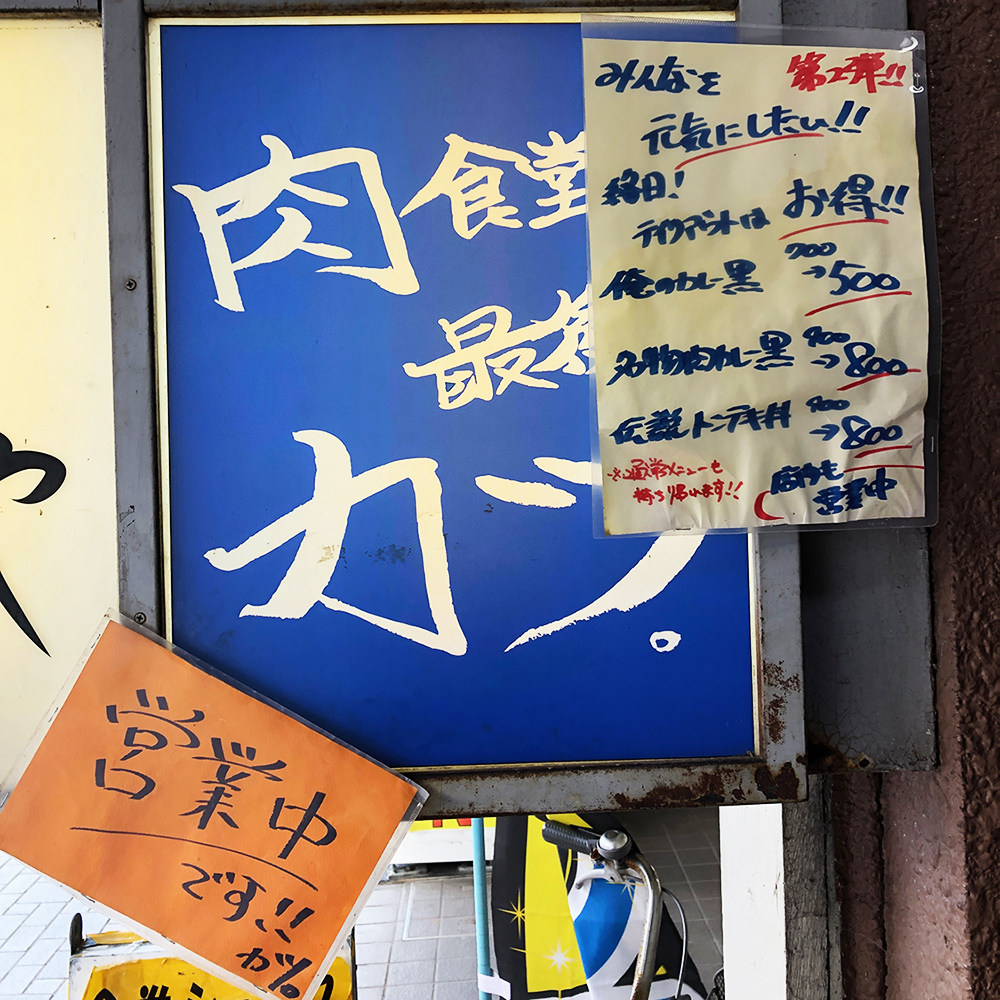 肉
食堂
最
カッ。
第2弾!!
みんなを
元気にしたい!!
終日!
テイクアウトは お得!!
俺のカレー黒 700→500
名物肉カレー黒 900→800
伝説トンテキ丼 900→800
※通常メニューも
持ち帰れます!!
店内も
営業中
営業中
です!!
カッ。
や